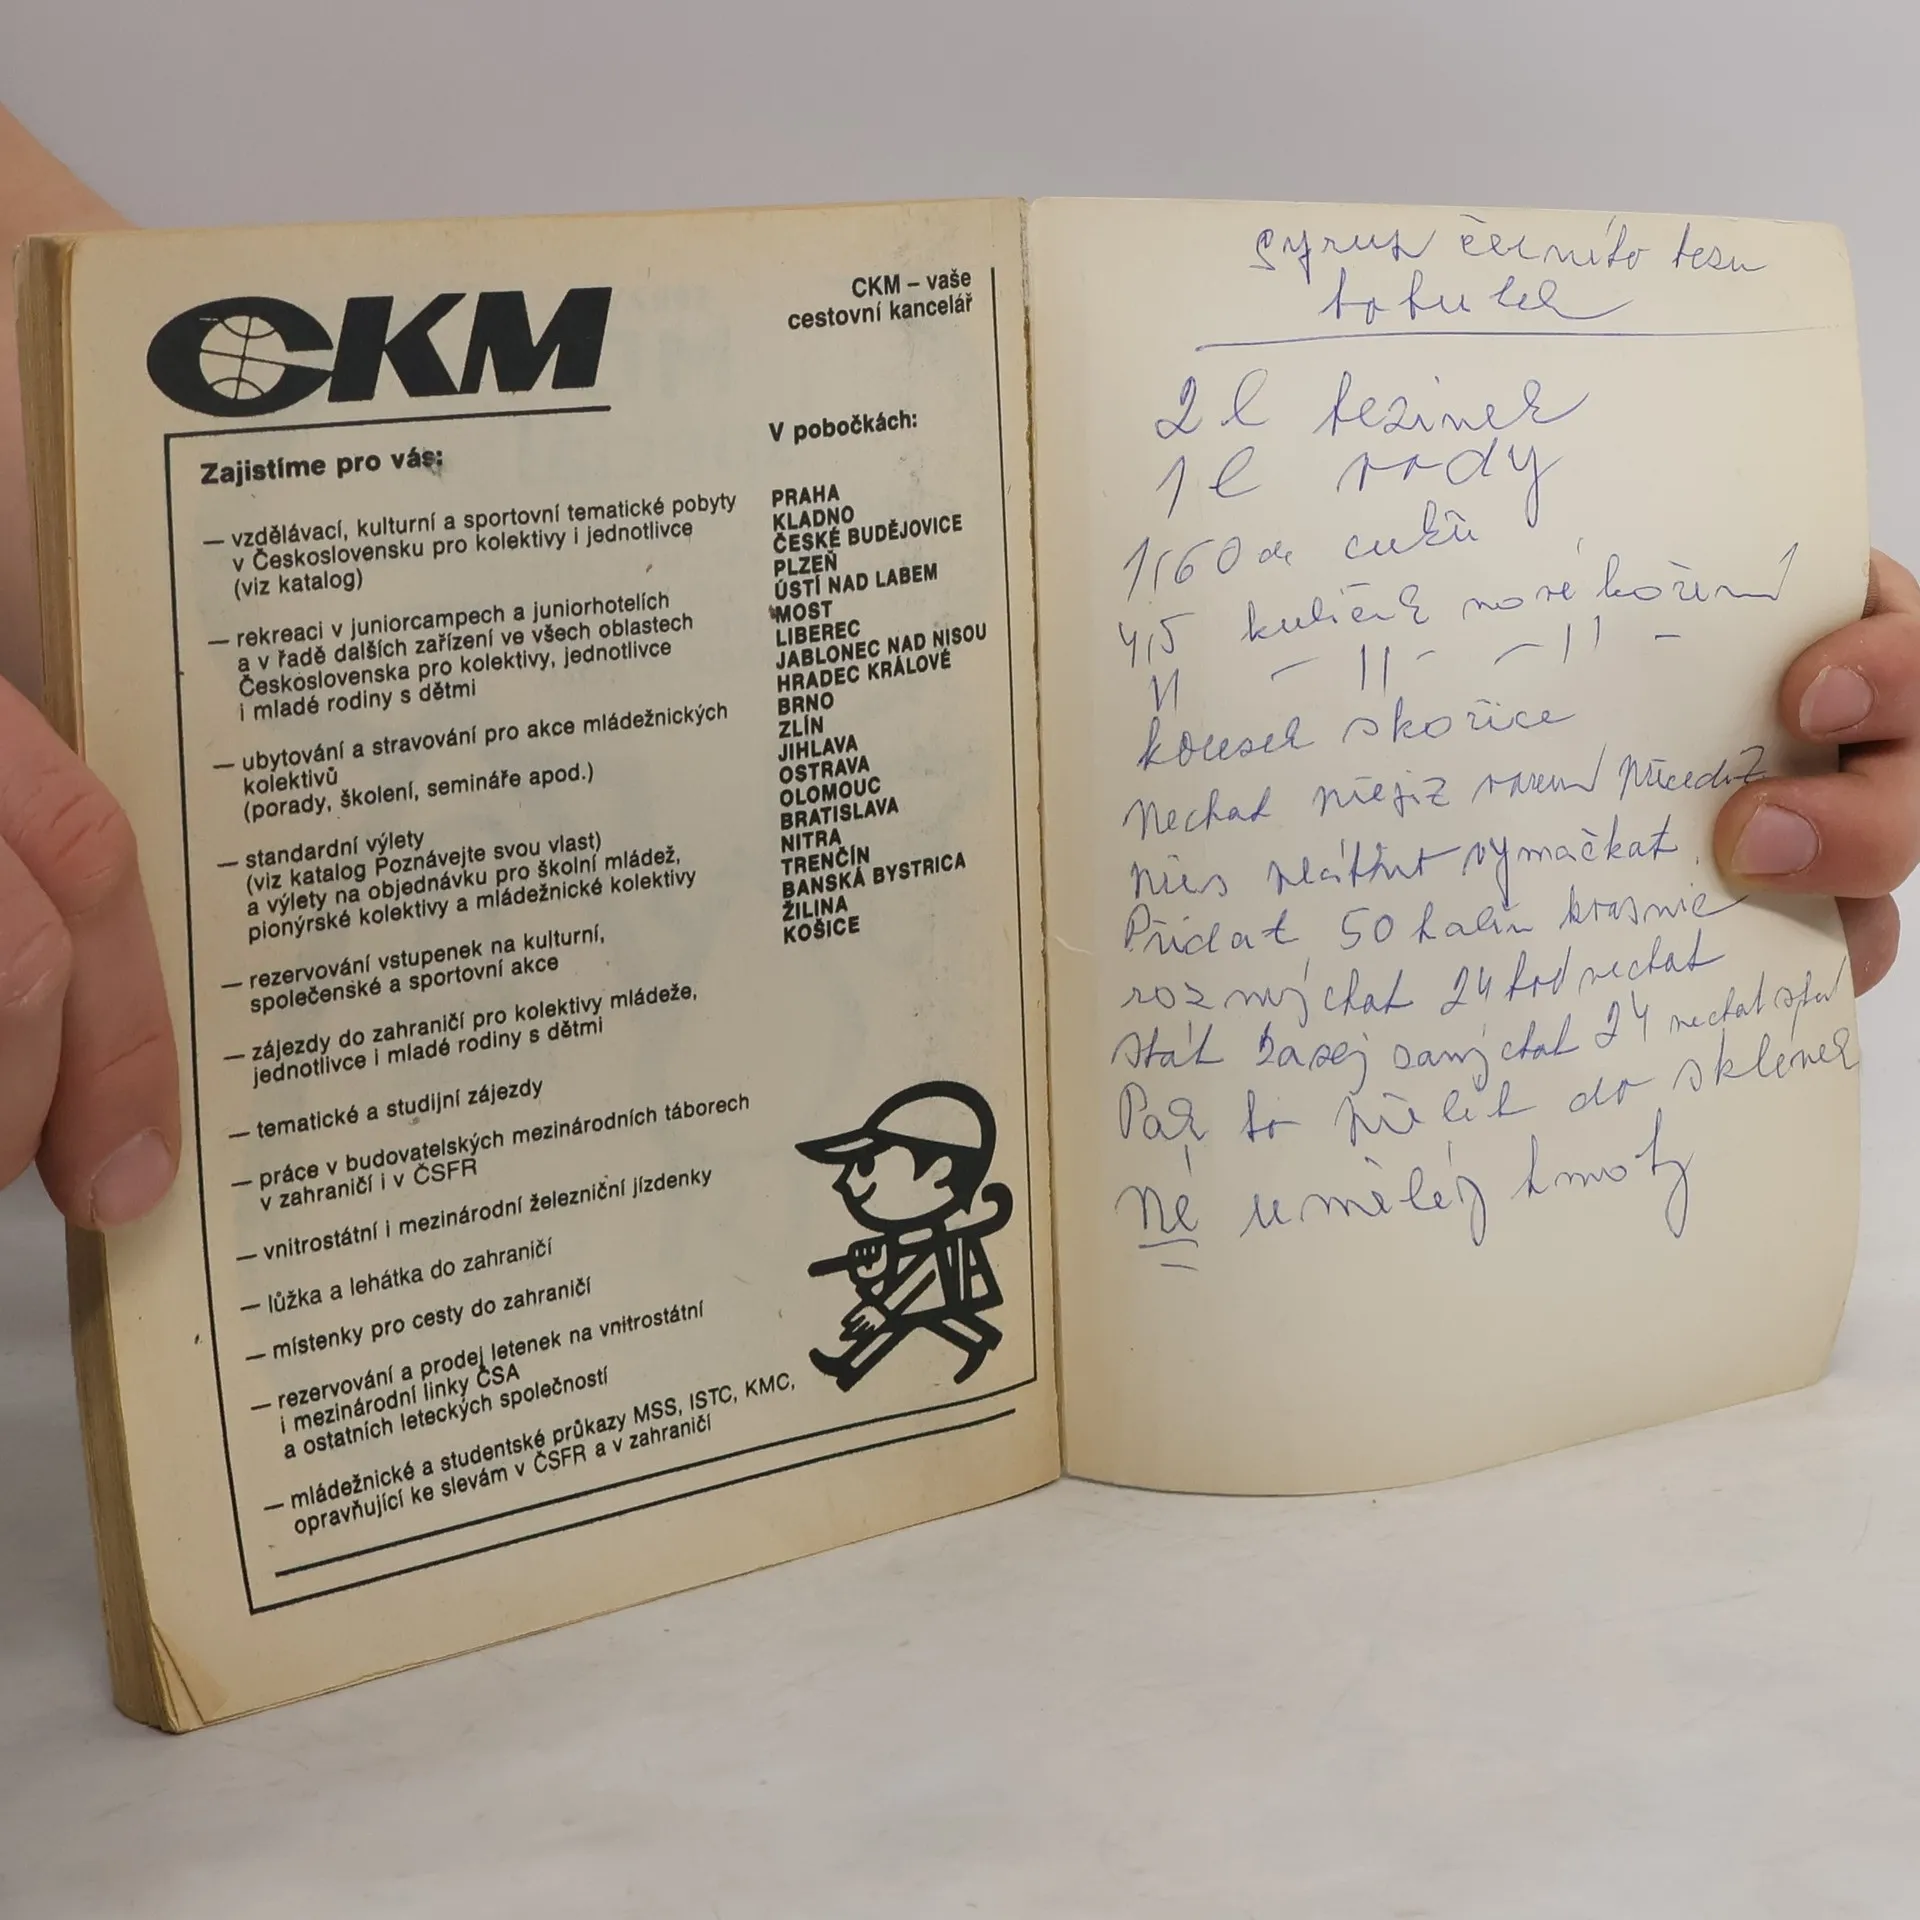 CKM
CKM – vaše
cestovní kancelář
Zajistíme pro vás:
— vzdělávací, kulturní a sportovní tematické pobyty
v Československu pro kolektivy i jednotlivce
(viz katalog)
— rekreaci v juniorcampech a juniorhotelích
a v řadě dalších zařízení ve všech oblastech
Československa pro kolektivy, jednotlivce
i mladé rodiny s dětmi
— ubytování a stravování pro akce mládežnických
kolektivů
(porady, školení, semináře apod.)
— standardní výlety
(viz katalog Poznávejte svou vlast)
a výlety na objednávku pro školní mládež,
pionýrské kolektivy a mládežnické kolektivy
— rezervování vstupenek na kulturní,
společenské a sportovní akce
— zájezdy do zahraničí pro kolektivy mládeže,
jednotlivce i mladé rodiny s dětmi
— tematické a studijní zájezdy
— práce v budovatelských mezinárodních táborech
v zahraničí i v ČSFR
— vnitrostátní i mezinárodní železniční jízdenky
— lůžka a lehátka do zahraničí
— místenky pro cesty do zahraničí
— rezervování a prodej letenek na vnitrostátní
i mezinárodní linky ČSA
a ostatních leteckých společností
— mládežnické a studentské průkazy MSS, ISTC, KMC,
opravňující ke slevám v ČSFR a v zahraničí
V pobočkách:
PRAHA
KLADNO
ČESKÉ BUDĚJOVICE
PLZEŇ
ÚSTÍ NAD LABEM
MOST
LIBEREC
JABLONEC NAD NISOU
HRADEC KRÁLOVÉ
BRNO
ZLÍN
JIHLAVA
OSTRAVA
OLOMOUC
BRATISLAVA
NITRA
TRENČÍN
BANSKÁ BYSTRICA
ŽILINA
KOŠICE
Syrup černího bezu
bobulek
2 l bezinek
1 l vody
1,60 dc cukru
4,5 kuliček nové koření
11 – 11 – – 11 –
kousek skořice
Nechat přejiz varem
vymačkat
Přidat 50
rozmýchat 24 hod nechat
stát zasej zamýchat 24 nechat stát
Pak to přelít do sklenek
Né umělej hmoty